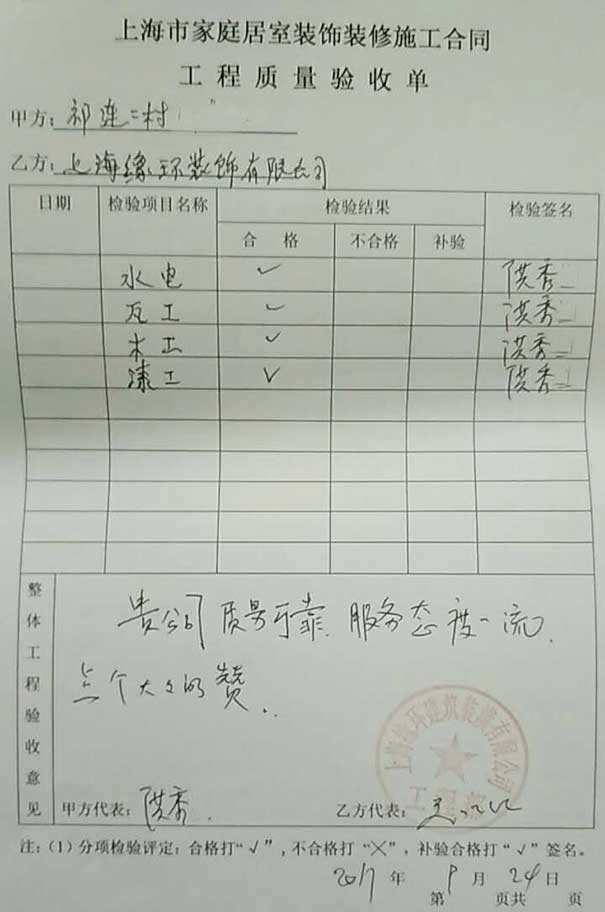 上海市家庭居室装饰装修施工合同
工程质量验收单
甲方：祁连二村
乙方：上海缘环装饰有限公司
日期 检验项目名称 检验结果 检验签名
合格 不合格 补验
水电 ✓ 洪秀
瓦工 ✓ 洪秀
木工 ✓ 洪秀
漆工 ✓ 洪秀
整体工程验收意见
贵公司质量可靠 服务态度一流.
点个大大的赞.
甲方代表：洪秀
乙方代表：
注：(1) 分项检验评定：合格打“√”，不合格打“╳”，补验合格打“√”签名。
2017年9月24日
第 页共 页